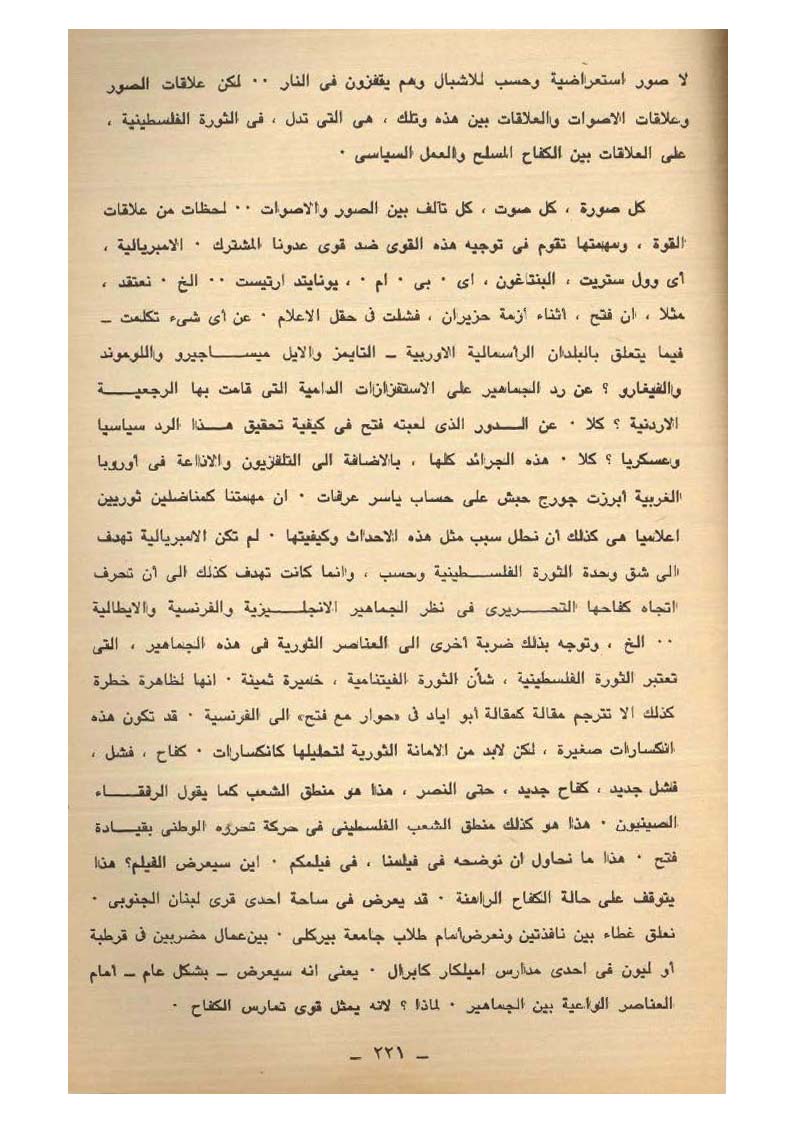 لا صور استعراضية وحسب للاشبال وهم يقفزون فى النار ٠٠ لكن علاقات الصور
وعلاقات الاصوات والعلاقات بين هذه وتلك ، هى التى تدل ، فى الثورة الفلسطينية ،
على العلاقات بين الكفاح المسلح والعمل السياسى ٠
كل صورة ، كل صوت ، كل تآلف بين الصور والاصوات ٠٠ لحظات من علاقات
القوة ، ومهمتها تقوم فى توجيه هذه القوى ضد قوى عدونا المشترك ٠ الامبريالية ،
أى وول ستريت ، البنتاغون ، اى ٠ بى ٠ ام ٠ ، يونايتد ارتيست ٠٠ الخ ٠ نعتقد ،
مثلا ، ان فتح ، أثناء أزمة حزيران ، فشلت فى حقل الاعلام ٠ عن أى شىء تكلمت ــ
فيما يتعلق بالبلدان الرأسمالية الاوربية ــ التايمز والايل ميساجيرو واللوموند
والفيغارو ؟ عن رد الجماهير على الاستفزازات الدامية التى قامت بها الرجعية
الاردنية ؟ كلا ٠ عن الدور الذى لعبته فتح فى كيفية تحقيق هذا الرد سياسيا
وعسكريا ؟ كلا ٠ هذه الجرائد كلها ، بالاضافة الى التلفزيون والاذاعة فى أوروبا
الغربية أبرزت جورج حبش على حساب ياسر عرفات ٠ ان مهمتنا كمناضلين ثوريين
اعلاميا هى كذلك أن نحلل سبب مثل هذه الاحداث وكيفيتها ٠ لم تكن الامبريالية تهدف
الى شق وحدة الثورة الفلسطينية وحسب ، وانما كانت تهدف كذلك الى أن تحرف
اتجاه كفاحها التحريرى فى نظر الجماهير الانجليزية والفرنسية والايطالية
٠٠ الخ ، وتوجه بذلك ضربة أخرى الى العناصر الثورية فى هذه الجماهير ، التى
تعتبر الثورة الفلسطينية ، شأن الثورة الفيتنامية ، خميرة ثمينة ٠ انها لظاهرة خطرة
كذلك الا تترجم مقالة كمقالة أبو اياد فى «حوار مع فتح» الى الفرنسية ٠ قد تكون هذه
انكسارات صغيرة ، لكن لابد من الامانة الثورية لتحليلها كانكسارات ٠ كفاح ، فشل ،
فشل جديد ، كفاح جديد ، حتى النصر ، هذا هو منطق الشعب كما يقول الرفقاء
الصينيون ٠ هذا هو كذلك منطق الشعب الفلسطينى فى حركة تحرره الوطنى بقيادة
فتح ٠ هذا ما نحاول ان نوضحه فى فيلمنا ، فى فيلمكم ٠ اين سيعرض الفيلم؟ هذا
يتوقف على حالة الكفاح الراهنة ٠ قد يعرض فى ساحة احدى قرى لبنان الجنوبى ٠
نعلق غطاء بين نافذتين ونعرض أمام طلاب جامعة بيركلى ٠ بين عمال مضربين فى قرطبة
أو ليون فى احدى مدارس اميلكار كابرال ٠ يعنى انه سيعرض ــ بشكل عام ــ أمام
العناصر الواعية بين الجماهير ٠ لماذا ؟ لانه يمثل قوى تمارس الكفاح ٠
ــ ٢٢١ ــ